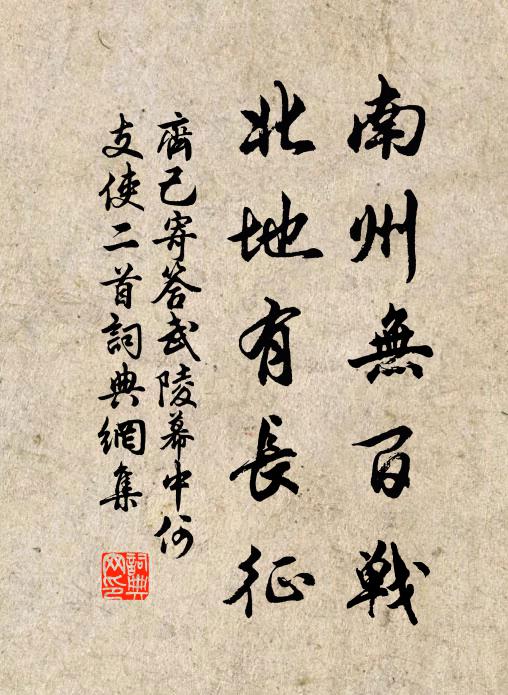 南州無百戰
北地有長征
齊己寄答武陵幕中何
支使二首詞典網集
詞典網印